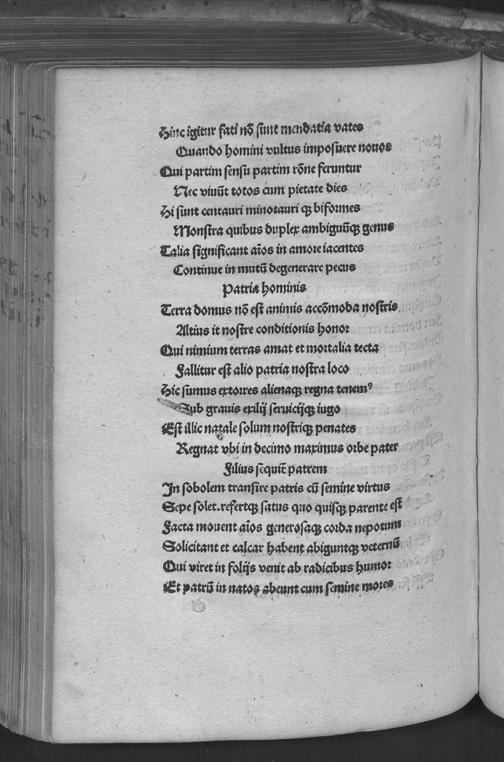 Hinc igitur fati nõ sunt mendatia vates
Quando homini vultus imposuere nouos
Qui partim sensu partim rõne feruntur
Nec viuũt totos cum pietate dies
Hi sunt centauri minotauri qꝫ biformes
Monstra quibus duplex ambiguũqꝫ genus
Talia significant aĩos in amore iacentes
Continue in mutũ degenerare pecus
Patria hominis
Terra domus nõ est animis accõmoda nostris
Altius it nostre conditionis honor
Qui nimium terras amat et mortalia tecta
Fallitur est alio patria nostra loco
Hic sumus extorres alienaqꝫ regna tenemꝰ
Sub grauis exilij seruicijqꝫ iugo
Est illic natale solum nostriqꝫ penates
Regnat vbi in decimo maximus orbe pater
Filius sequit̃ patrem
In sobolem transire patris cũ semine virtus
Sepe solet.refertqꝫ satus quo quisqꝫ parente est
Facta mouent aĩos generosaqꝫ corda nepotum
Solicitant et calcar habent abiguntqꝫ veternũ
Qui viret in folijs venit ab radicibus humor
Et patrũ in natos abeunt cum semine mores